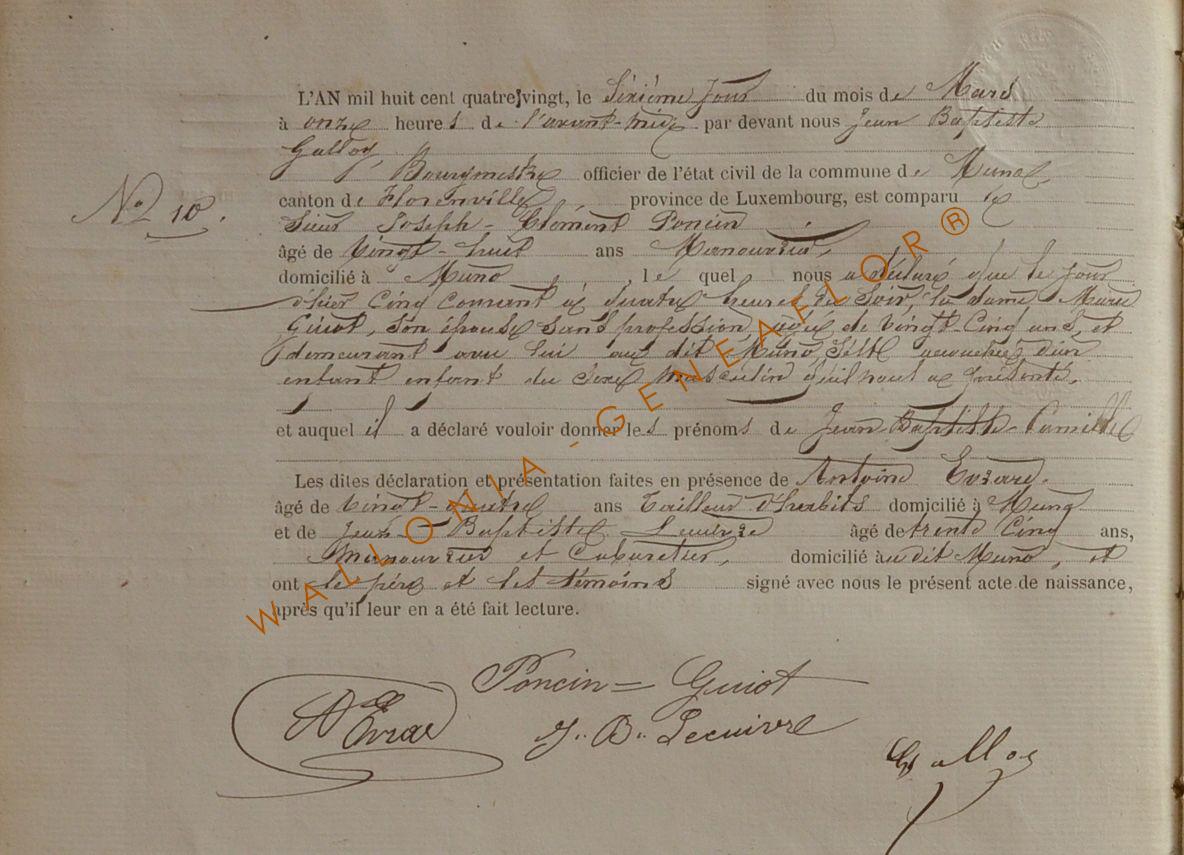 L'AN mil huit cent quatre vingt, le Sixième Jour du mois de Mars
à onze heures de l'avant-midi par devant nous Jean Baptiste
Galloy,
Bourgmestre officier de l'état civil de la commune de Muno,
canton de Florenville province de Luxembourg, est comparu le
Nº 10.
Sieur Joseph-Clément Poncin
âgé de Vingt-huit ans Manouvrier,
domicilié à Muno, le quel nous a déclaré que le jour
d'hier Cinq Courant à quatre heures du Soir, la dame Marie
Guiot, son épouse sans profession, âgée de Vingt-Cinq ans, et
demeurant avec lui au dit Muno, accouchée d'un
enfant enfant du Sexe Masculin qu'il nous a présenté,
et auquel il a déclaré vouloir donner les prénoms de Jean Baptiste Camille
Les dites déclaration et présentation faites en présence de Antoine Evrard,
âgé de Vingt-quatre ans Tailleur d'habits domicilié à Muno
et de Jean-Baptiste Lecuivre âgé de trente Cinq ans,
Manouvrier et Cabaretier, domicilié audit Muno, et
ont le père et les témoins signé avec nous le présent acte de naissance,
après qu'il leur en a été fait lecture.
Poncin=Guiot
A Evrard
J.. B.. Lecuivre
Galloy
WALLONIA - GENEAFLOR ®